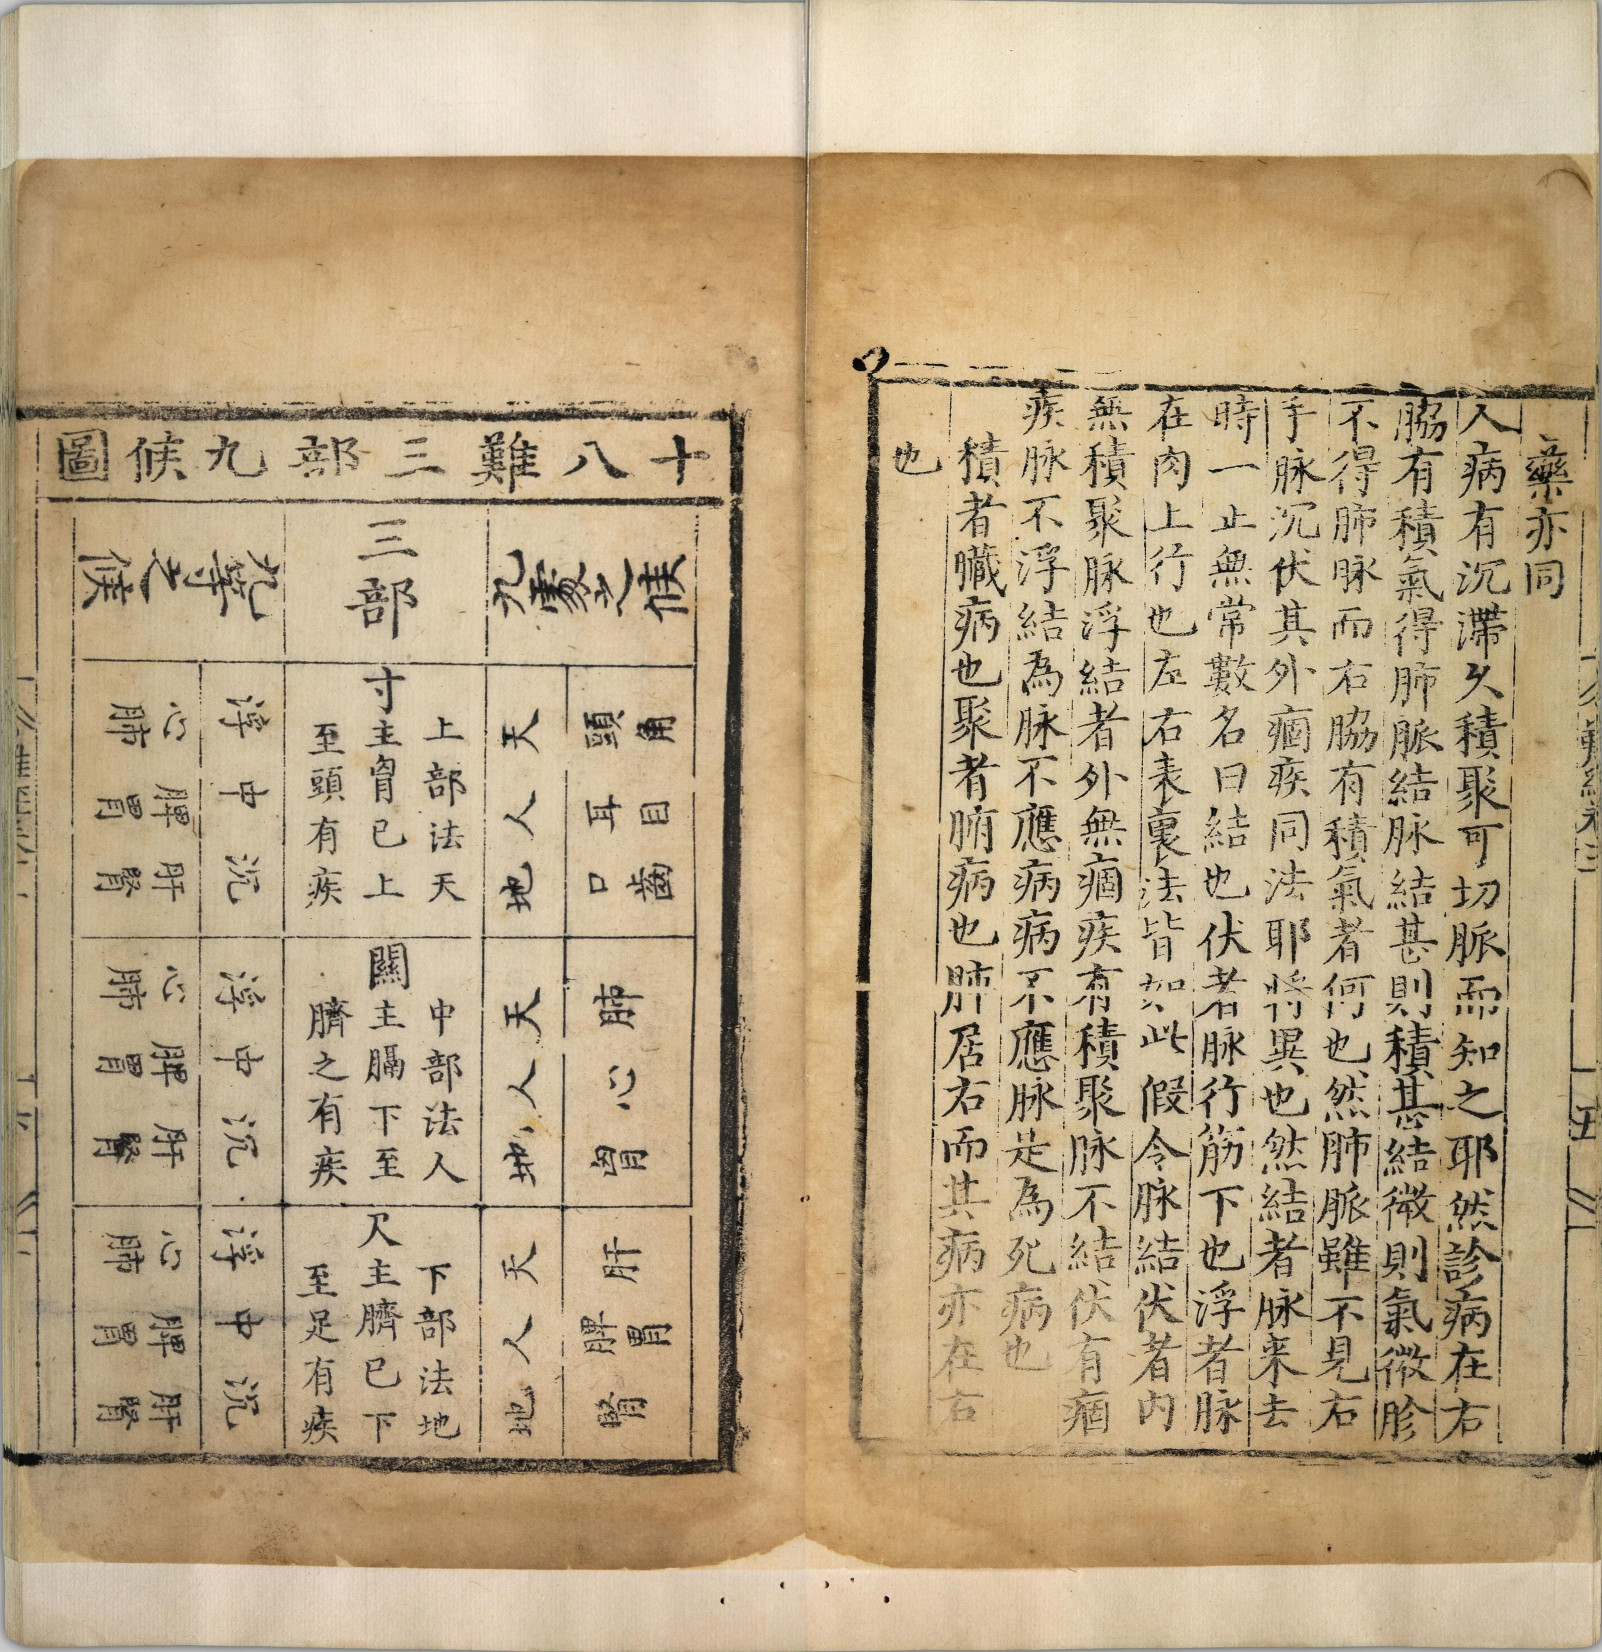 藥亦同
人病有沉滯久積聚可切脈而知之耶然診病在右
脇有積氣得肺脈結脉結甚則積甚結微則氣微胗
不得肺脉而右脇有積氣者何也然肺脈雖不見右
手脉沉伏其外痼疾同法耶將異也然結者脉来去
時一止無常數名曰結也伏者脉行筋下也浮者脉
在肉上行也左右表裏法皆如此假令脉結伏者內
無積聚脉浮結者外無痼疾有積聚脉不結伏有痼
疾脉不浮結為脉不應病病不應脉是為死病也
積者臓病也聚者腑病也肺居右而其病亦在右
也
五
十八難三部九候圖
九處之候
三部
九等之候
頭角
耳目
口齒
天
人
地
上部法天
寸主胷已上
至頭有疾
浮
中
沉
心肺
脾胃
肝腎
肺
心
胷
天
人
地
中部法人
關主膈下至
臍之有疾
浮
中
沉
心肺
脾胃
肝腎
肝
脾胃
腎
天
人
地
下部法地
尺主臍已下
至足有疾
浮
中
沉
心肺
脾胃
肝腎